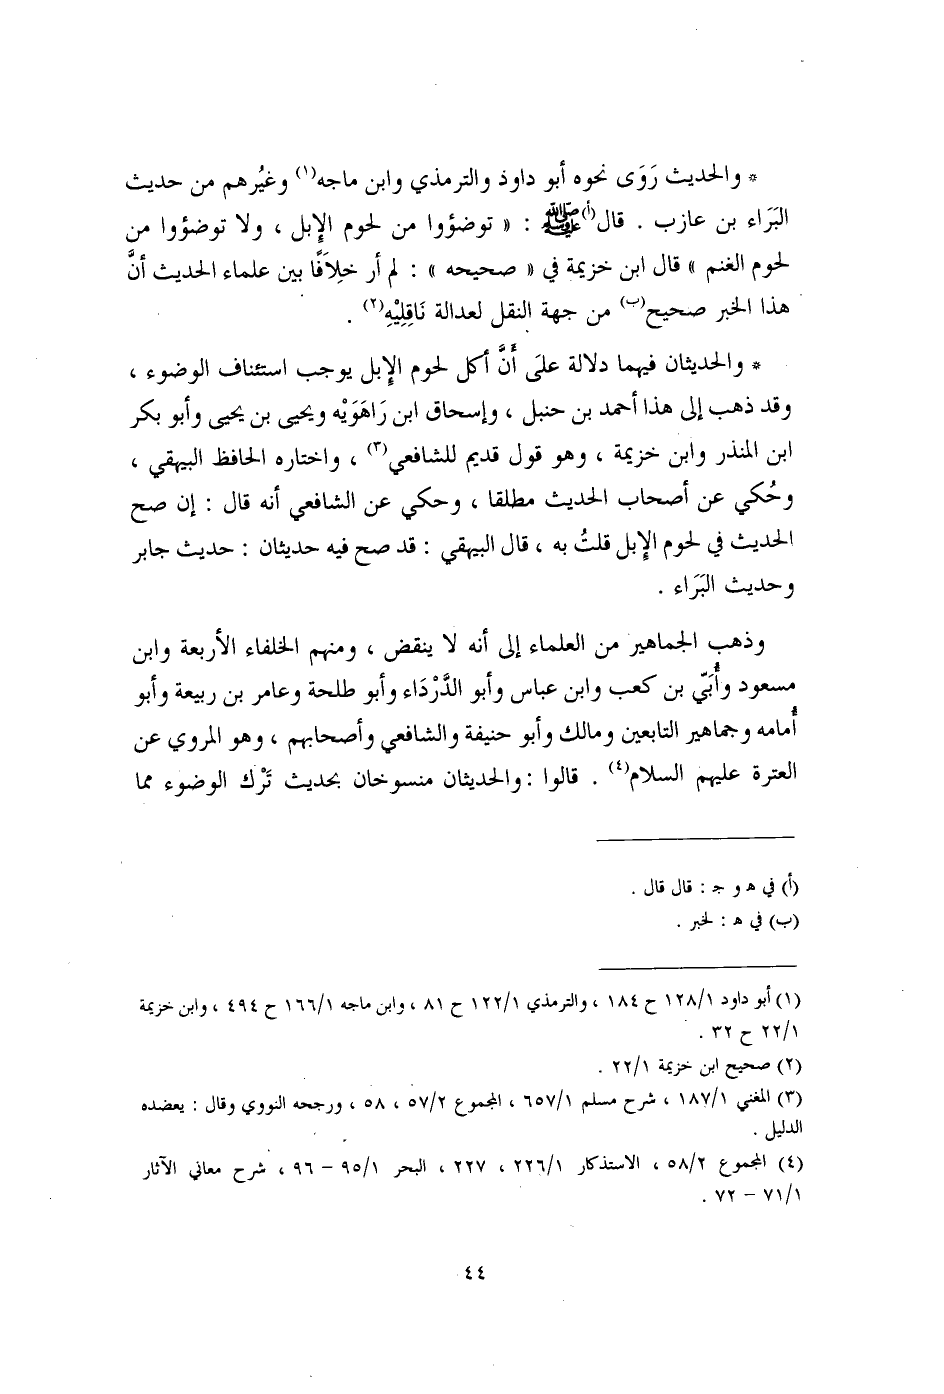 * والحديث رَوَى نحوه أبو داوذ والترمذي وابن ماجه(١) وغيُرهم من حديث
البَرَاء بن عازب . قال(أ)ﷺ : « توضؤوا من لحوم الإبل ، ولا توضؤوا من
لحوم الغنم » قال ابن خزيمة في « صحيحه » : لم أر خلاَفًا بين علماء الحديث أنَّ
هذا الخبر صحيح(ب) من جهة النقل لعدالة نَاقِلِيْهِ(٢) .
* والحديثان فيهما دلالة علىَ أَنَّ أكل لحوم الإبل يوجب استئناف الوضوء ،
وقد ذهب إلى هذا أحمد بن حنبل ، وإسحاق ابن رَاهَوَيْه ويحيى بن يحيى وأبو بكر
ابن المنذر وابن خزيمة ، وهو قول قديم للشافعي(٣) ، واختاره الحافظ البيهقي ،
وحُكي عن أصحاب الحديث مطلقا ، وحكي عن الشافعي أنه قال : إن صح
الحديث في لحوم الإبل قلتُ به ، قال البيهقي : قد صح فيه حديثان : حديث جابر
وحديث البَرَاء .
وذهب الجماهير من العلماء إلى أنه لا ينقض ، ومنهم الخلفاء الأربعة وابن
مسعود وأُبَيّ بن كعب وابن عباس وأبو الدَّرْدَاء وأبو طلحة وعامر بن ربيعة وأبو
أُمامه وجماهير التابعين ومالك وأبو حنيفة والشافعي وأصحابهم ، وهو المروي عن
العترة عليهم السلام(٤) . قالوا : والحديثان منسوخان بحديث تَرْك الوضوء مما
(أ) في هـ و جـ : قال قال .
(ب) في هـ : لخبر .
(١) أبو داود ١٢٨/١ ح ١٨٤ ، والترمذي ١٢٢/١ ح ٨١ ، وابن ماجه ١٦٦/١ ح ٤٩٤ ، وابن خزيمة
٢٢/١ ح ٣٢ .
(٢) صحيح ابن خزيمة ٢٢/١ .
(٣) المغني ١٨٧/١ ، شرح مسلم ٦٥٧/١ ، المجموع ٥٧/٢ ، ٥٨ ، ورجحه النووي وقال : يعضده
الدليل .
(٤) المجموع ٥٨/٢ ، الاستذكار ٢٢٦/١ ، ٢٢٧ ، البحر ٩٥/١ – ٩٦ ، شرح معاني الآثار
٧١/١ – ٧٢ .
٤٤